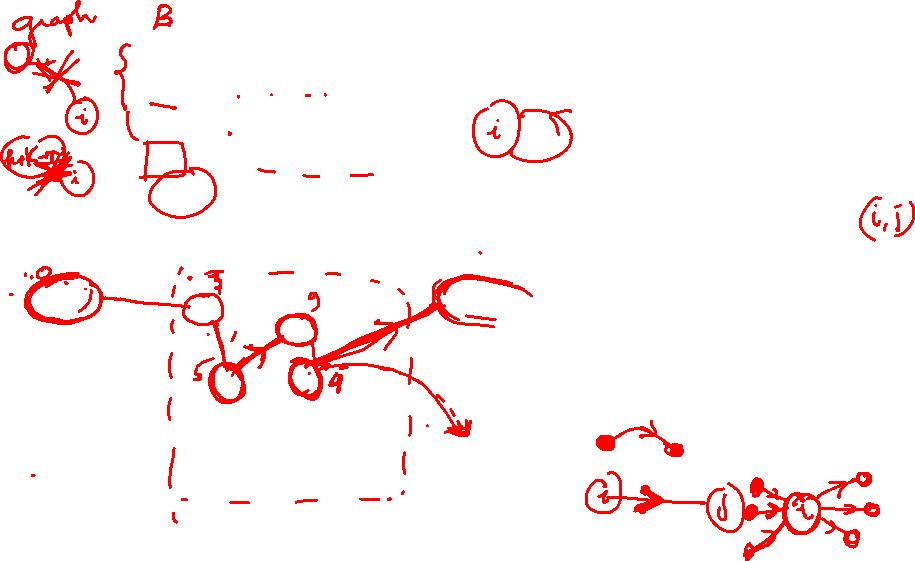 graph B
i
i
i
(i, j)
3
9
5
4
i
j
i